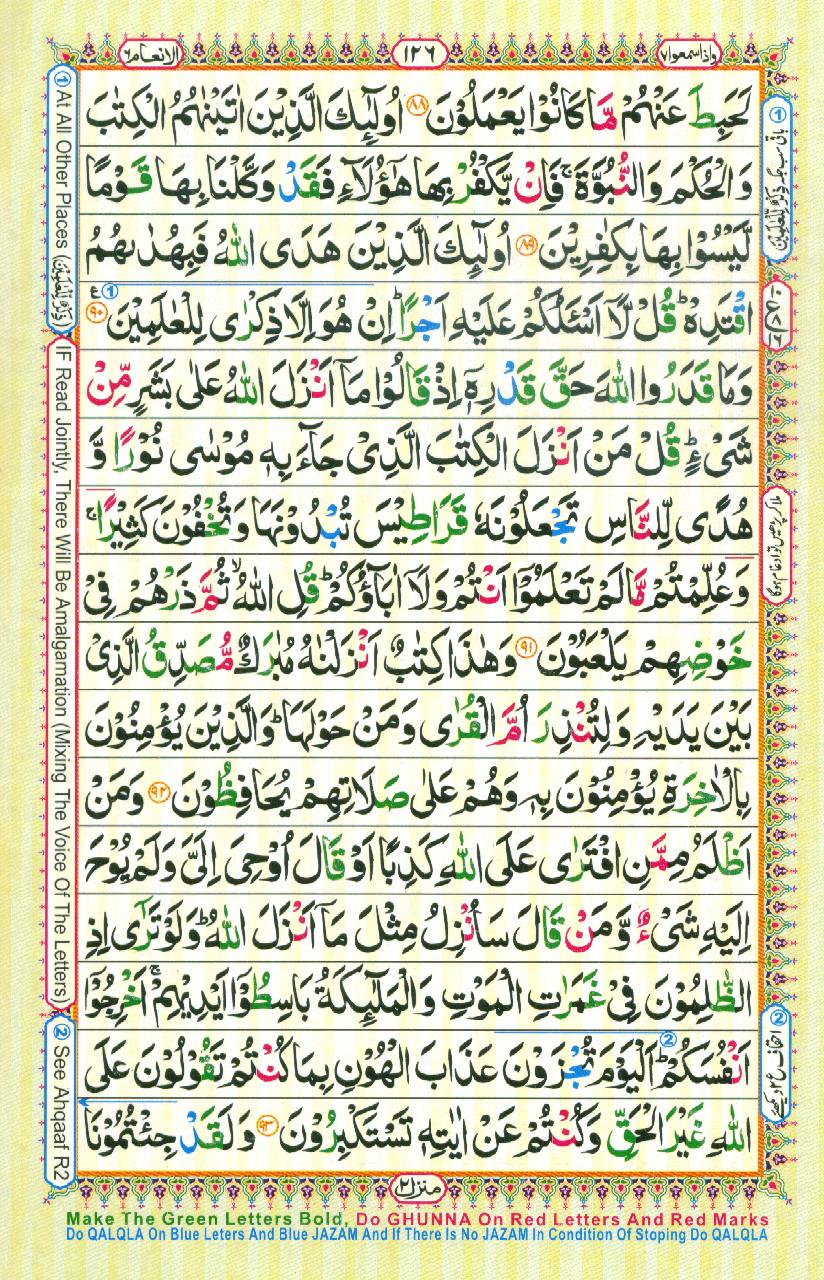 واذاسمعوا۷
۱۲۶
الانعام۶
لَحَبِطَ عَنْهُمْ مَّا كَانُوْا يَعْمَلُوْنَ ۸۸ اُولٰٓئِكَ الَّذِيْنَ اٰتَيْنٰهُمُ الْكِتٰبَ
وَالْحُكْمَ وَالنُّبُوَّةَ ۚ فَاِنْ يَّكْفُرْ بِهَا هٰٓؤُلَآءِ فَقَدْ وَكَّلْنَا بِهَا قَوْمًا
لَّيْسُوْا بِهَا بِكٰفِرِيْنَ ۸۹ اُولٰٓئِكَ الَّذِيْنَ هَدَى اللّٰهُ فَبِهُدٰىهُمُ
اقْتَدِهْ ؕ قُلْ لَّاۤ اَسْـَٔلُكُمْ عَلَيْهِ اَجْرًا ؕ اِنْ هُوَ اِلَّا ذِكْرٰى لِلْعٰلَمِيْنَ ۹۰ ع ①
وَمَا قَدَرُوا اللّٰهَ حَقَّ قَدْرِهٖۤ اِذْ قَالُوْا مَاۤ اَنْزَلَ اللّٰهُ عَلٰى بَشَرٍ مِّنْ
شَىْءٍ ؕ قُلْ مَنْ اَنْزَلَ الْكِتٰبَ الَّذِىْ جَآءَ بِهٖ مُوْسٰى نُوْرًا وَّ
هُدًى لِّلنَّاسِ تَجْعَلُوْنَهٗ قَرَاطِيْسَ تُبْدُوْنَهَا وَتُخْفُوْنَ كَثِيْرًا ۚ
وَعُلِّمْتُمْ مَّا لَمْ تَعْلَمُوْۤا اَنْتُمْ وَلَاۤ اٰبَآؤُكُمْ ؕ قُلِ اللّٰهُ ۙ ثُمَّ ذَرْهُمْ فِىْ
خَوْضِهِمْ يَلْعَبُوْنَ ۹۱ وَهٰذَا كِتٰبٌ اَنْزَلْنٰهُ مُبٰرَكٌ مُّصَدِّقُ الَّذِىْ
بَيْنَ يَدَيْهِ وَلِتُنْذِرَ اُمَّ الْقُرٰى وَمَنْ حَوْلَهَا ؕ وَالَّذِيْنَ يُؤْمِنُوْنَ
بِالْاٰخِرَةِ يُؤْمِنُوْنَ بِهٖ وَهُمْ عَلٰى صَلَاتِهِمْ يُحَافِظُوْنَ ۹۲ وَمَنْ
اَظْلَمُ مِمَّنِ افْتَرٰى عَلَى اللّٰهِ كَذِبًا اَوْ قَالَ اُوْحِىَ اِلَىَّ وَلَمْ يُوْحَ
اِلَيْهِ شَىْءٌ وَّمَنْ قَالَ سَاُنْزِلُ مِثْلَ مَاۤ اَنْزَلَ اللّٰهُ ؕ وَلَوْ تَرٰٓى اِذِ
الظّٰلِمُوْنَ فِىْ غَمَرٰتِ الْمَوْتِ وَالْمَلٰٓئِكَةُ بَاسِطُوْۤا اَيْدِيْهِمْ ۚ اَخْرِجُوْۤا
اَنْفُسَكُمْ ؕ اَلْيَوْمَ تُجْزَوْنَ ② عَذَابَ الْهُوْنِ بِمَا كُنْتُمْ تَقُوْلُوْنَ عَلَى
اللّٰهِ غَيْرَ الْحَقِّ وَكُنْتُمْ عَنْ اٰيٰتِهٖ تَسْتَكْبِرُوْنَ ۹۳ وَلَقَدْ جِئْتُمُوْنَا
منزل۲
① At All Other Places (ذِكْرٌ لِّلْعٰلَمِيْنَ)
IF Read Jointly, There Will Be Amalgamation (Mixing The Voice Of The Letters)
② See Ahqaaf R2
Make The Green Letters Bold, Do GHUNNA On Red Letters And Red Marks
Do QALQLA On Blue Leters And Blue JAZAM And If There Is No JAZAM In Condition Of Stoping Do QALQLA